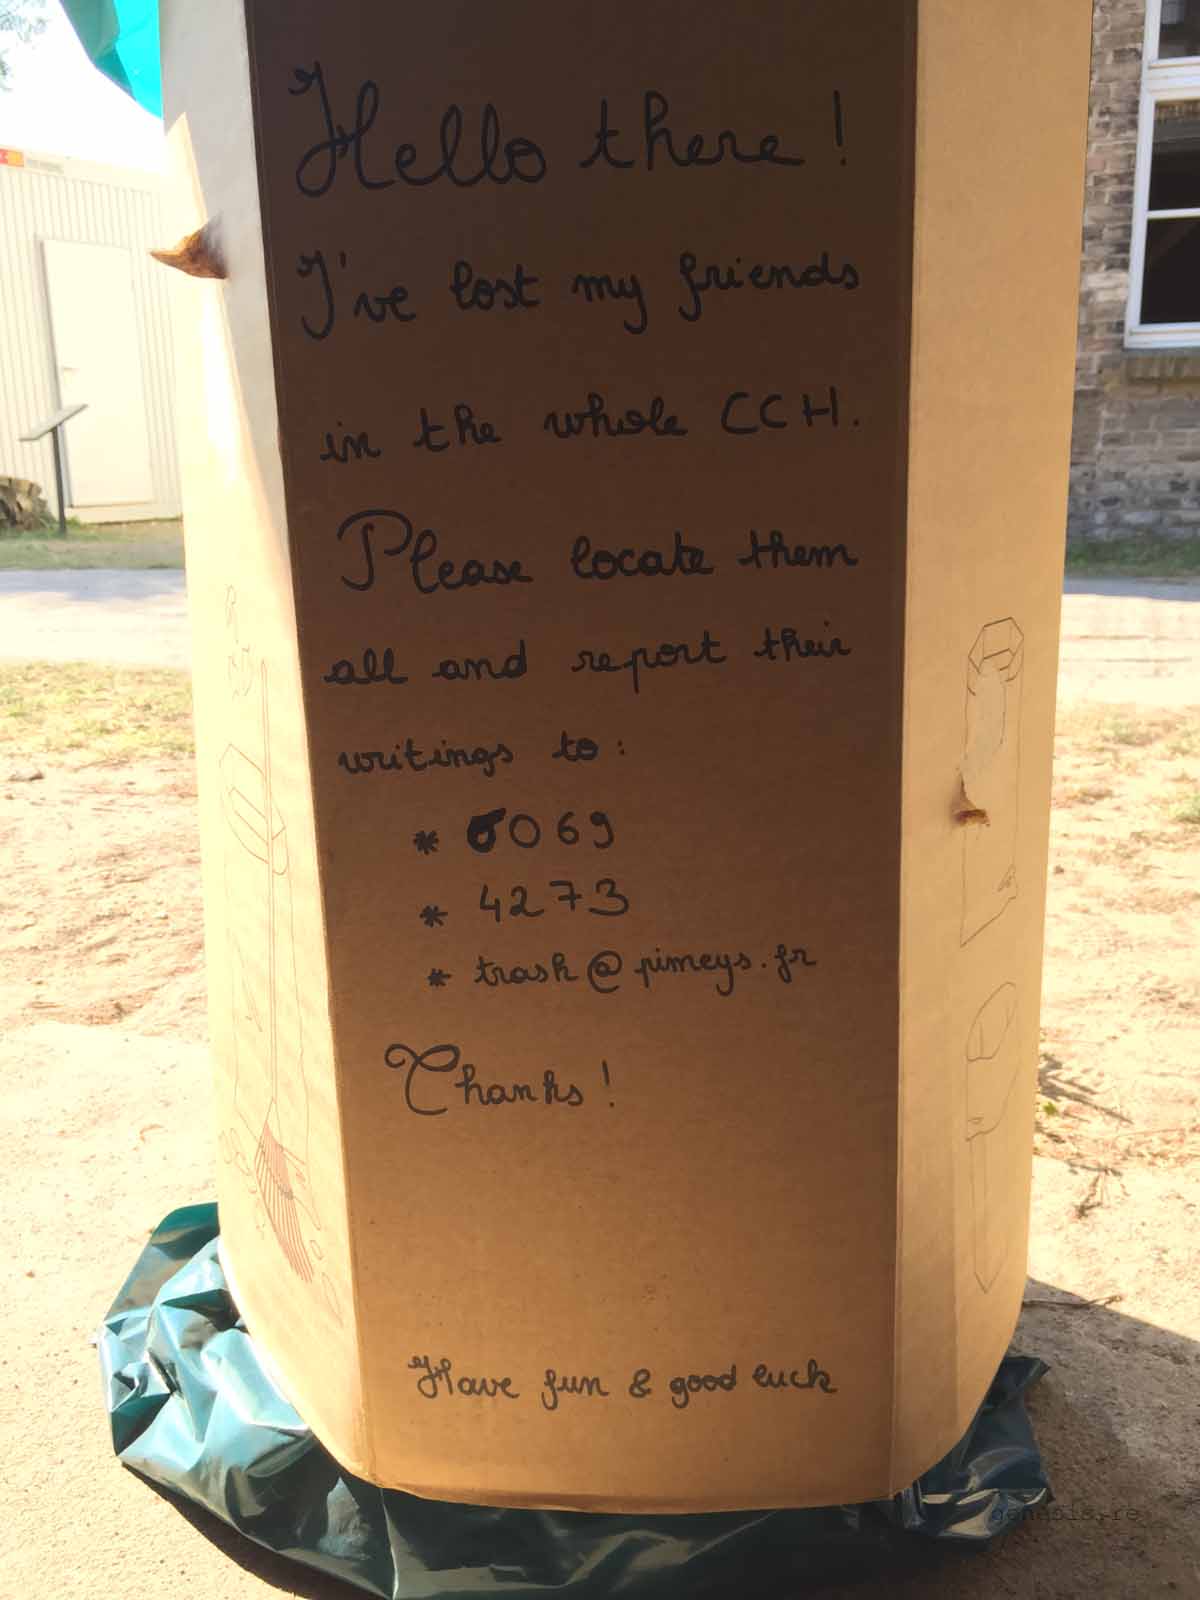 Hello there!
I've lost my friends
in the whole CCH.
Please locate them
all and report their
writings to:
* 6069
* 4273
* trash@pimeys.fr
Thanks!
Have fun & good luck
genesis.re